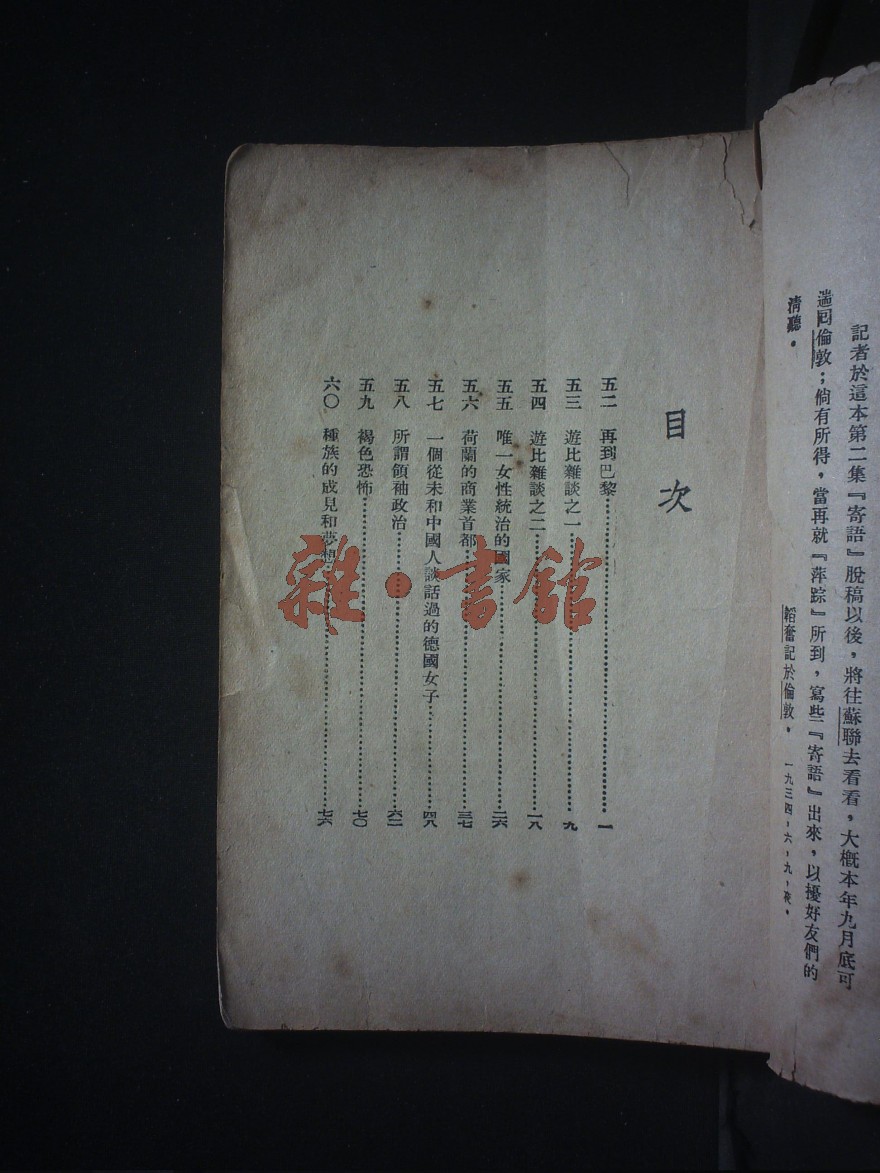 記者於這本第二集『寄語』脫稿以後，將往蘇聯去看看，大概本年九月底可
遄回倫敦；倘有所得，當再就『萍踪』所到，寫些『寄語』出來，以擾好友們的
清聽。
韜奮記於倫敦。 一九三四，六，九，夜。
目次
五二 再到巴黎……一
五三 遊比雜談之一……九
五四 遊比雜談之二……一八
五五 唯一女性統治的國家……二六
五六 荷蘭的商業首都……三七
五七 一個從未和中國人談話過的德國女子……四八
五八 所謂領袖政治……六二
五九 褐色恐怖……七〇
六〇 種族的成見和夢想……七六
雜·書館